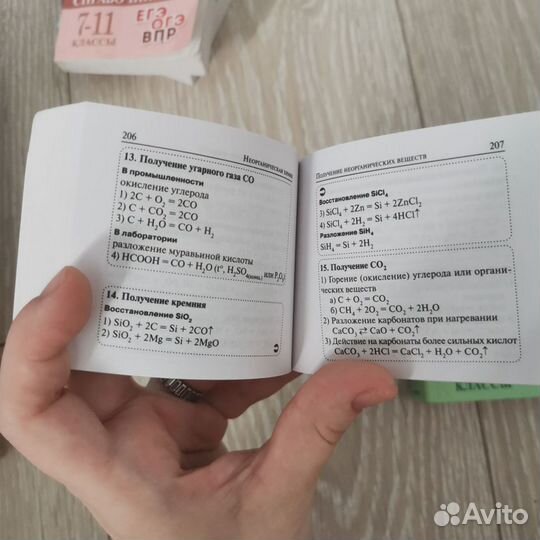 СПРАВОЧНИК
7-11
КЛАССЫ
ЕГЭ
ОГЭ
ВПР
206
Неорганическая химия
13. Получение угарного газа CO
В промышленности
окисление углерода
1) 2C + O₂ = 2CO
2) C + CO₂ = 2CO
3) C + H₂O = CO + H₂
В лаборатории
разложение муравьиной кислоты
4) HCOOH = CO + H₂O (t°, H₂SO₄(конц.) или P₂O₅)
14. Получение кремния
Восстановление SiO₂
1) SiO₂ + 2C = Si + 2CO↑
2) SiO₂ + 2Mg = Si + 2MgO
Получение неорганических веществ
207
Восстановление SiCl₄
3) SiCl₄ + 2Zn = Si + 2ZnCl₂
4) SiCl₄ + 2H₂ = Si + 4HCl↑
Разложение SiH₄
SiH₄ = Si + 2H₂
15. Получение CO₂
1) Горение (окисление) углерода или органи-
ческих веществ
а) C + O₂ = CO₂
б) CH₄ + 2O₂ = CO₂ + 2H₂O
2) Разложение карбонатов при нагревании
CaCO₃ ⇄ CaO + CO₂↑
3) Действие на карбонаты более сильных кислот
CaCO₃ + 2HCl = CaCl₂ + H₂O + CO₂↑
КЛАССЫ
Avito